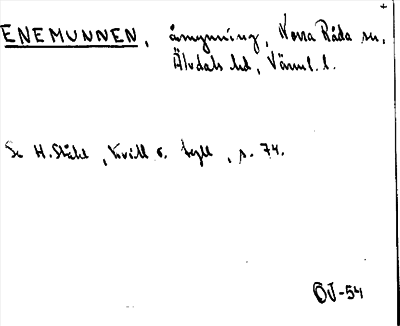 ENEMUNNEN, åmynning, Norra Råda sn,
Älvdals hd, Värml. l.
Se H. Ståhl, Kvill o. tyll, s. 74.
ÖJ-54